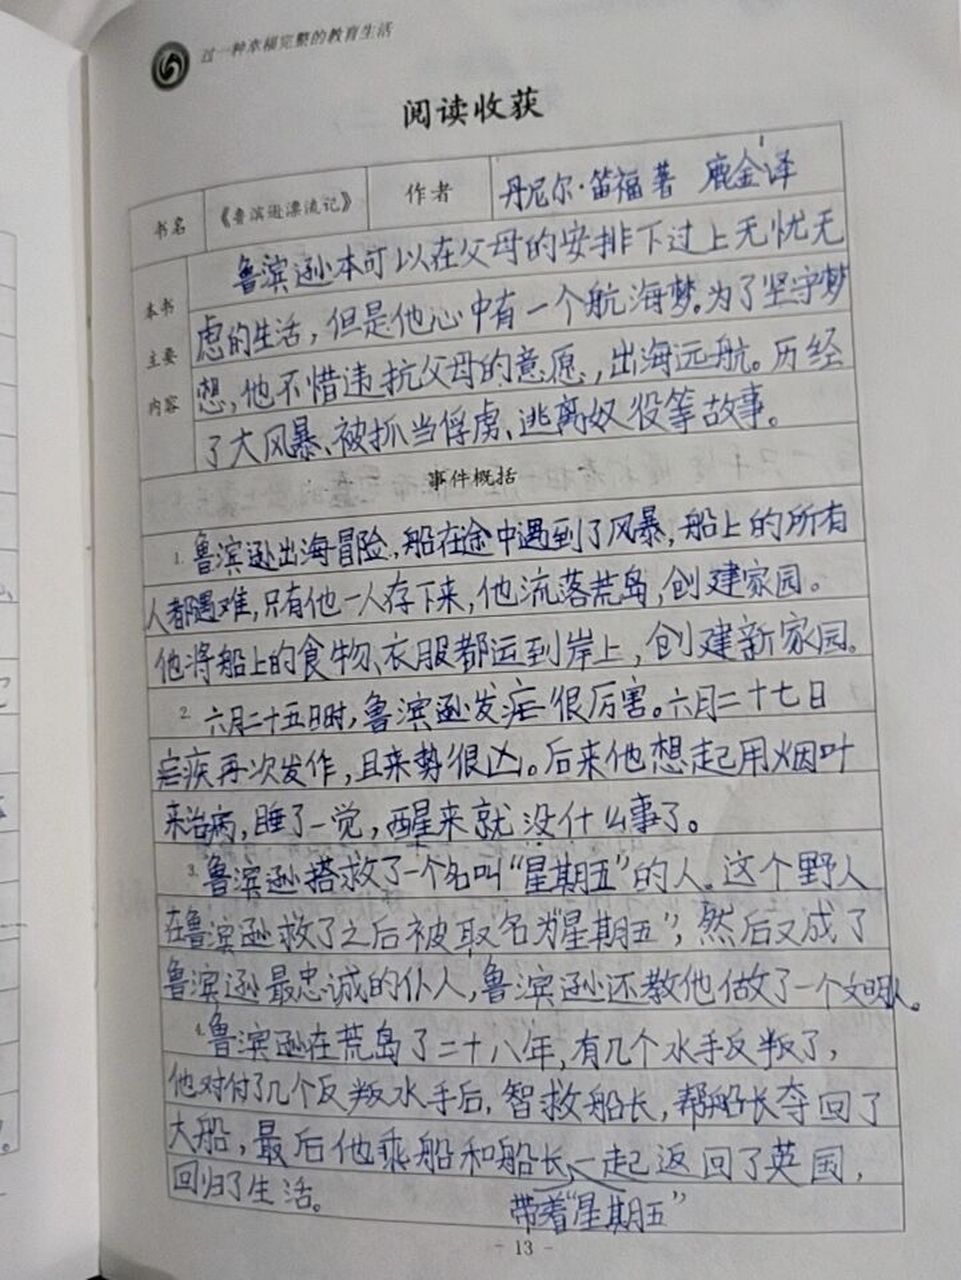 过一种幸福完整的教育生活
阅读收获
书名 《鲁滨逊漂流记》 作者 丹尼尔·笛福著 鹿金译
本书主要内容
鲁滨逊本可以在父母的安排下过上无忧无
虑的生活,但是他心中有一个航海梦。为了坚守梦
想,他不惜违抗父母的意愿,出海远航。历经
了大风暴、被抓当俘虏、逃离奴役等故事。
事件概括
1. 鲁滨逊出海冒险,船在途中遇到了风暴,船上的所有
人都遇难,只有他一人存下来,他流落荒岛,创建家园。
他将船上的食物、衣服都运到岸上,创建新家园。
2. 六月二十五日时,鲁滨逊发疟很厉害。六月二十七日
疟疾再次发作,且来势很凶。后来他想起用烟叶
来治病,睡了一觉,醒来就没什么事了。
3. 鲁滨逊搭救了一个名叫“星期五”的人。这个野人
在鲁滨逊救了之后被取名为“星期五”,然后又成了
鲁滨逊最忠诚的仆人,鲁滨逊还教他做了一个文明人。
4. 鲁滨逊在荒岛了二十八年,有几个水手反叛了,
他对付了几个反叛水手后,智救船长,帮船长夺回了
大船,最后他乘船和船长一起返回了英国,
回归了生活。 带着“星期五”
- 13 -